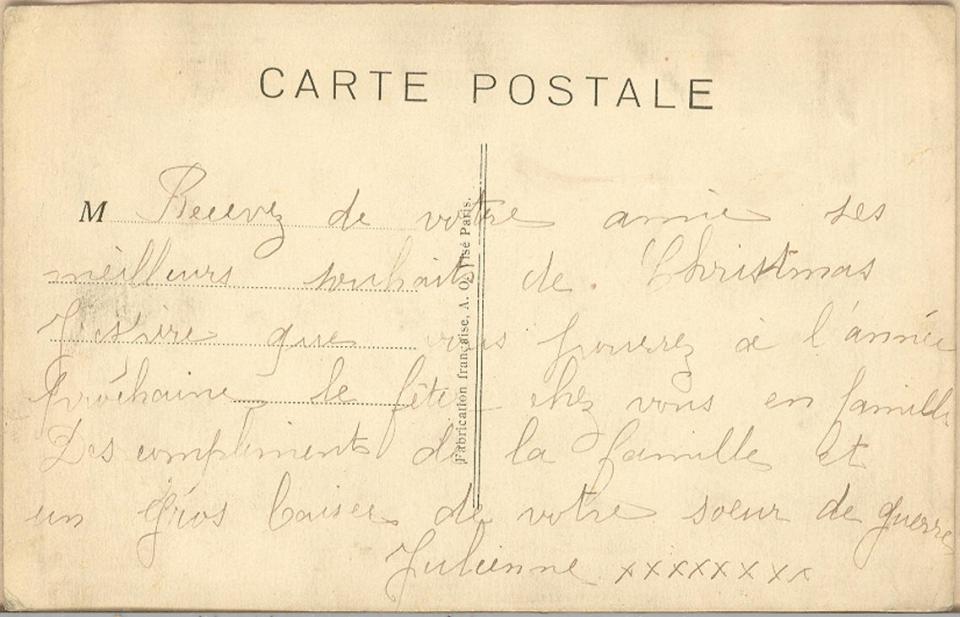 CARTE POSTALE
M Recevez de votre amie ses
meilleurs souhaits de Christmas
J'esire que vous pourrez à l'année
prochaine le fêter chez vous en famille
Des compliments de la famille et
un gros baiser de votre soeur de guerre
Julienne xxxxxxxx
Fabrication française, A. O. Visé Paris.